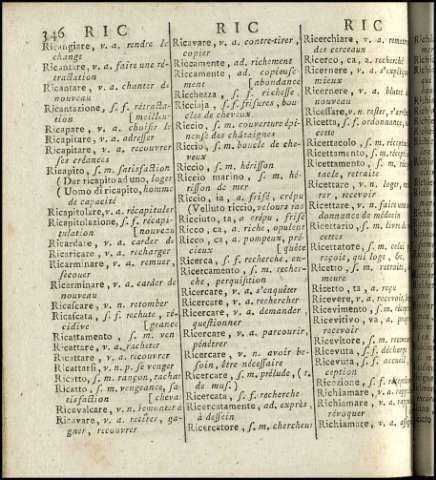 346 RIC
RIC
RIC
Ricangiare, v. a. rendre le
change
Ricantare, v. a. faire une ré-
tractation
Ricantare, v. a. chanter de
nouveau
Ricantazione, s. f. rétracta-
tion [meilleur
Ricapare, v. a. choisir le
Ricapitare, v. a. adresser
Ricapitare, v. a. recouvrer
ses créances
Ricapito, s. m. satisfaction
(Dar ricapito ad uno, loger
(Uomo di ricapito, homme
de capacité
Ricapitolare, v. a. récapituler
Ricapitolazione, s. f. récapi-
tulation [nouveau
Ricardare, v. a. carder de
Ricaricare, v. a. recharger
Ricarminare, v. a. remuer,
secouer
Ricarminare, v. a. carder de
nouveau
Ricascare, v. n. retomber
Ricascata, s. f. rechute, ré-
cidive [geance
Ricattamento, s. m. ven
Ricattare, v. a. racheter
Ricattare, v. a. recouvrer
Ricattarsi, v. n. p. se venger
Ricatto, s. m. rançon, rachat
Ricatto, s. m. vengeance, sa-
tisfaction [cheval
Ricavalcare, v. n. remonter à
Ricavare, v. a. retirer, ga-
gner, recouvrer
Ricavare, v. a. contre-tirer,
copier
Riccamente, ad. richement
Riccamente, ad. copieuse-
ment, abondance
Ricchezza, s. f. richesse
Ricciaja, s. f. frisures, bou
cles de cheveux
Riccio, s. m. couverture épi-
neuse des châtaignes
Riccio, s. m. boucle de che-
veux
Riccio, s. m. hérisson
Riccio marino, s. m. hé-
risson de mer
Riccio, ia, a. frisé, crépu
(Velluto riccio, velours ras
Ricciuto, ta, a. crépu, frisé
Ricco, ca, a. riche, opulent
Ricco, ca, a. pompeux, pré-
cieux [quête
Ricerca, s. f. recherche, en-
Ricercamento, s. m. recher-
che, perquisition
Ricercare, v. a. s'enquêter
Ricercare, v. a. rechercher
Ricercare, v. a. demander,
questionner
Ricercare, v. a. parcourir,
pénétrer
Ricercare, v. n. avoir be-
soin, être nécessaire
Ricercare, s. m. prélude, (t.
de mus.)
Ricercata, s. f. recherche
Ricercatamente, ad. exprès,
à dessein
Ricercatore, s. m. chercheur
Ricerchiare, v. a.
des cerceaux
Ricerco, ca, a. recherché
Ricernere, v. a. s'expliquer
mieux
Ricernere, v. a. bluter
nouveau
Ricessare, v. n. rester
Ricetta, s. f. ordonnance
cette
Ricettacolo, s. m.
Ricettamento, s. m.
Ricettamento, s. m.
tacle, retraite
Ricettare, v. n. loger,
rer, recevoir
Ricettare, v. n. faire une
donnance de médecin
Ricettario, s. m. livre de
cettes
Ricettatore, s. m. celui
reçoit, qui loge
Ricetto, s. m. retraite,
meure
Ricetto, ta, a. reçu
Ricevere, v. a. recevoir
Ricevimento, s. m.
Ricevitivo, va, a.
recevoir
Ricevitore, s. m.
Ricevuta, s. f.
Ricevuta, s. f. accueil
ception
Richiamare, v. a.
Richiamare, v. a.
révoquer
Richiamare, v. a.